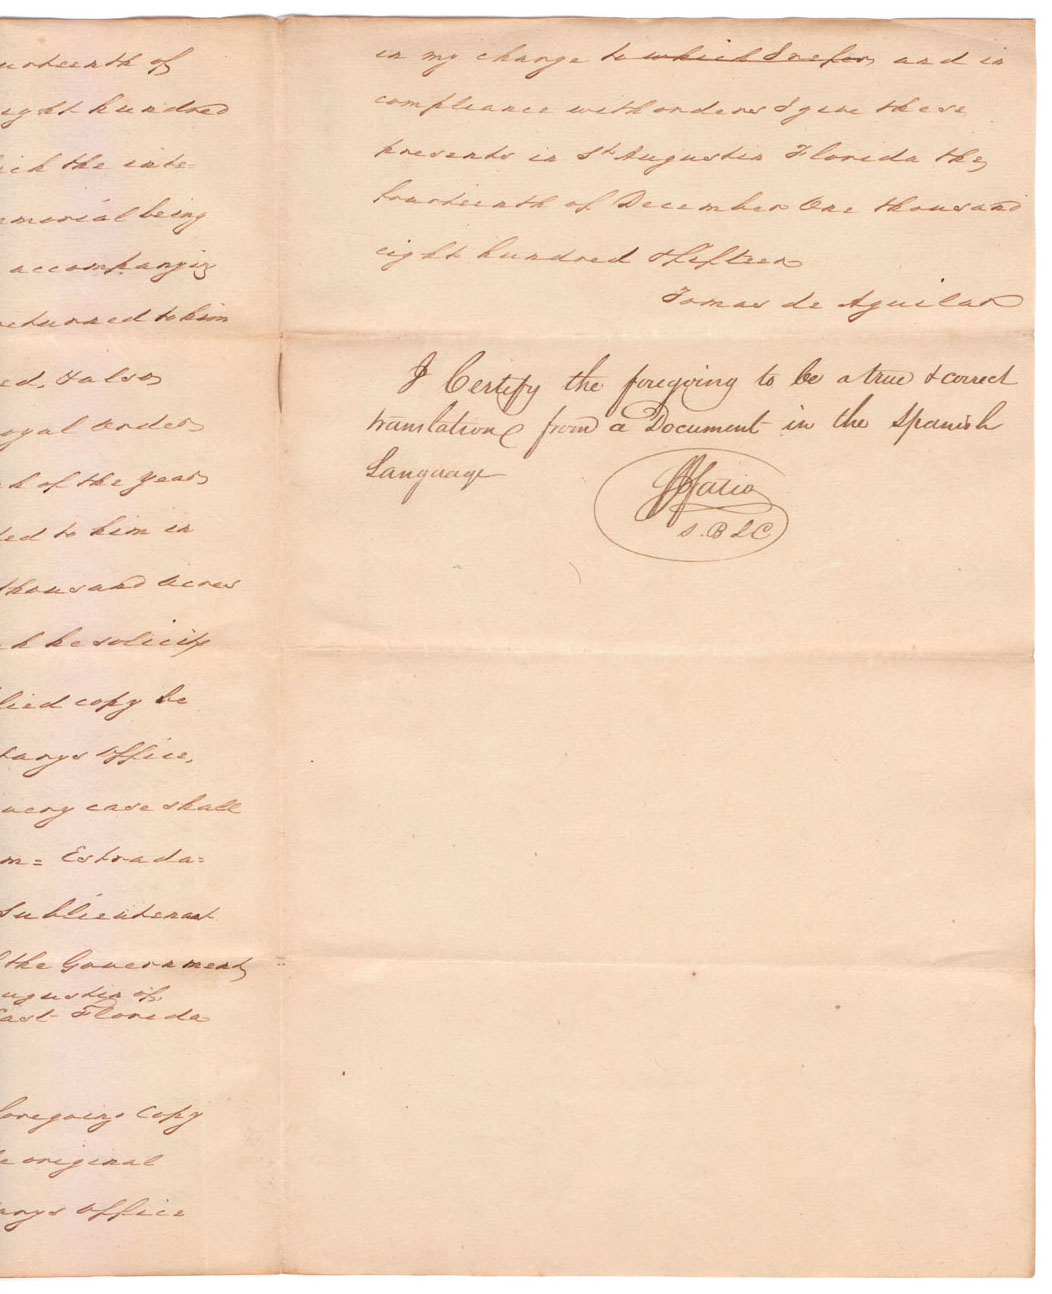 urteenth of
ight hundred
ich the inte=
morial being
accompanying
returned to him
ed, & also
oyal order
h of the year
ted to him in
thousand acres
h he solicits
lied copy be
tarys office,
very case shall
m= Estrada=
Sublieutenant
the Government
ugustin of
East Florida
foregoing Copy
e original
arys office
in my charge to which I refer, and in
compliance with orders I give these
presents in St Augustin Florida the
fourteenth of December One thousand
eight hundred & fifteen
Tomas de Aguilar
I Certify the foregoing to be a true & correct
translation from a Document in the Spanish
Language
Fatio
S. B L C